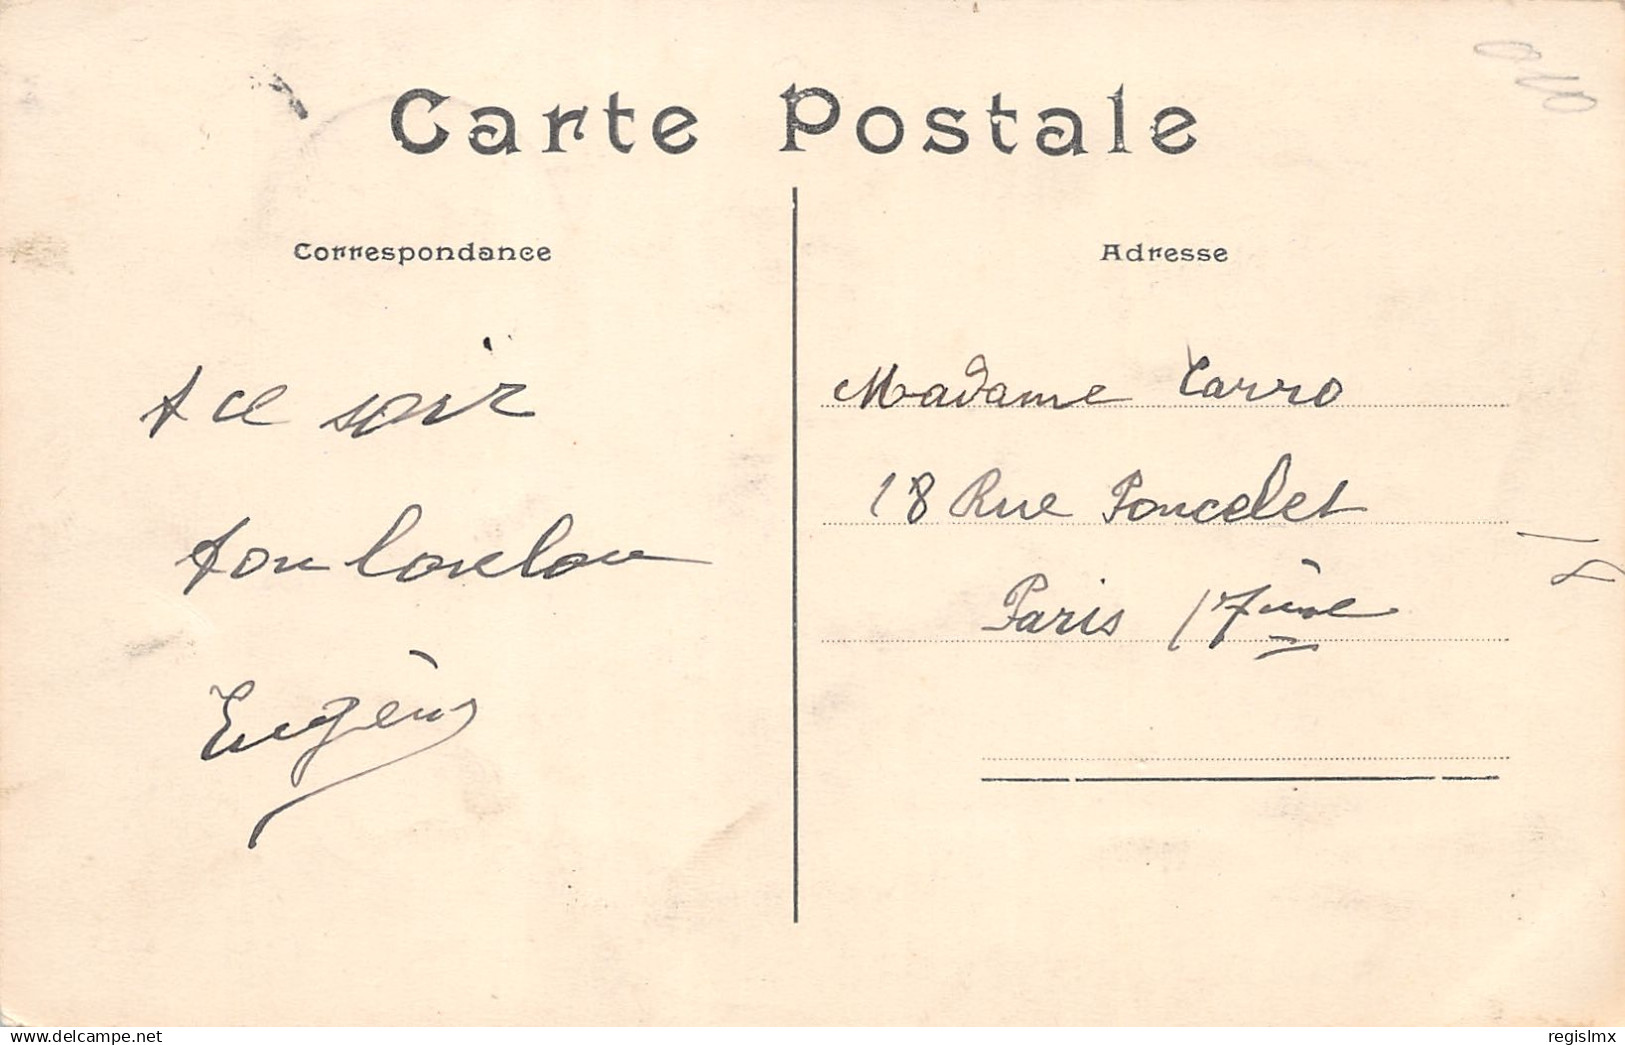 Carte Postale
Correspondance
A ce soir
ton loulou
Eugène
Adresse
Madame Carro
18 Rue Poncelet
Paris 17ème
www.delcampe.net
regislmx